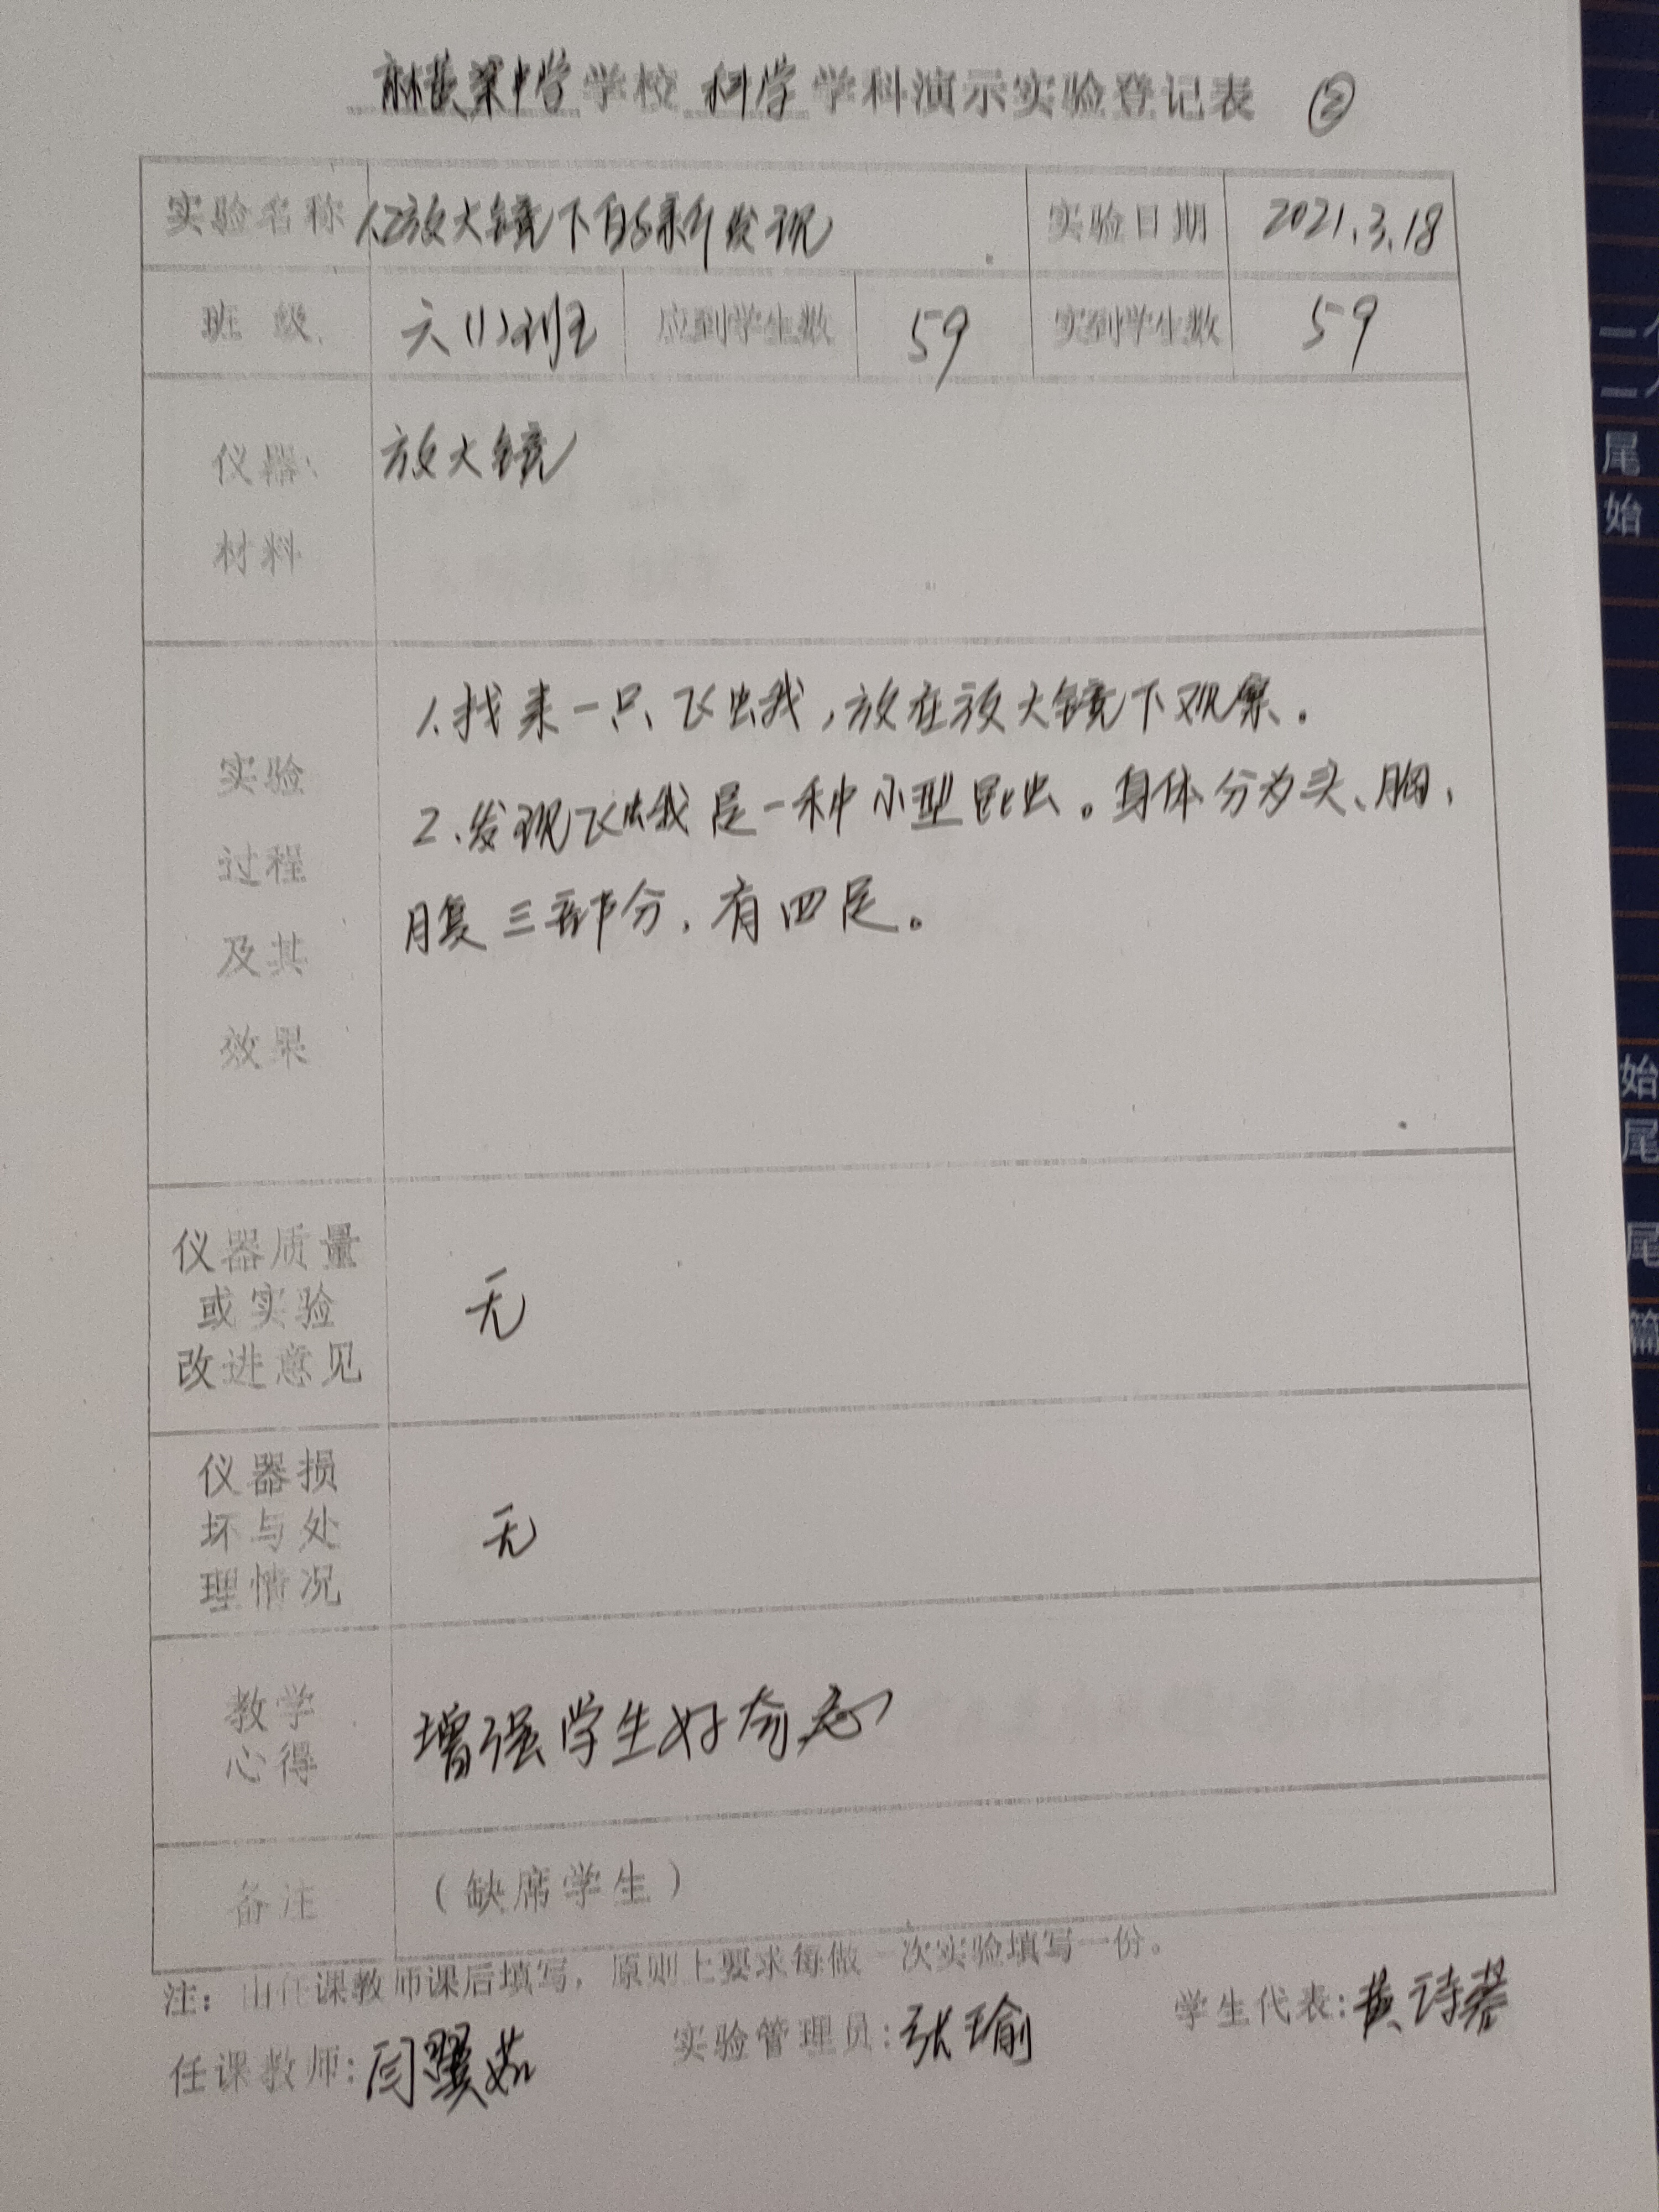 中学学校 科学学科演示实验登记表 ②
实验名称 1.2放大镜下的新发现 实验日期 2021.3.18
班 级 六(1)班 应到学生数 59 实到学生数 59
仪器 放大镜
材料
1.找来一只飞蛾,放在放大镜下观察。
实验
2.发现飞蛾是一种小型昆虫。身体分为头、胸、
过程
腹三部分,有四足。
及其
效果
仪器质量
或实验 无
改进意见
仪器损
坏与处 无
理情况
教学 增强学生好奇心
心得
备注 (缺席学生)
注:由任课教师课后填写,原则上要求每做一次实验填写一份。
任课教师:闫翼茹 实验管理员:张瑜 学生代表:黄诗
尾
始
始
尾
尾